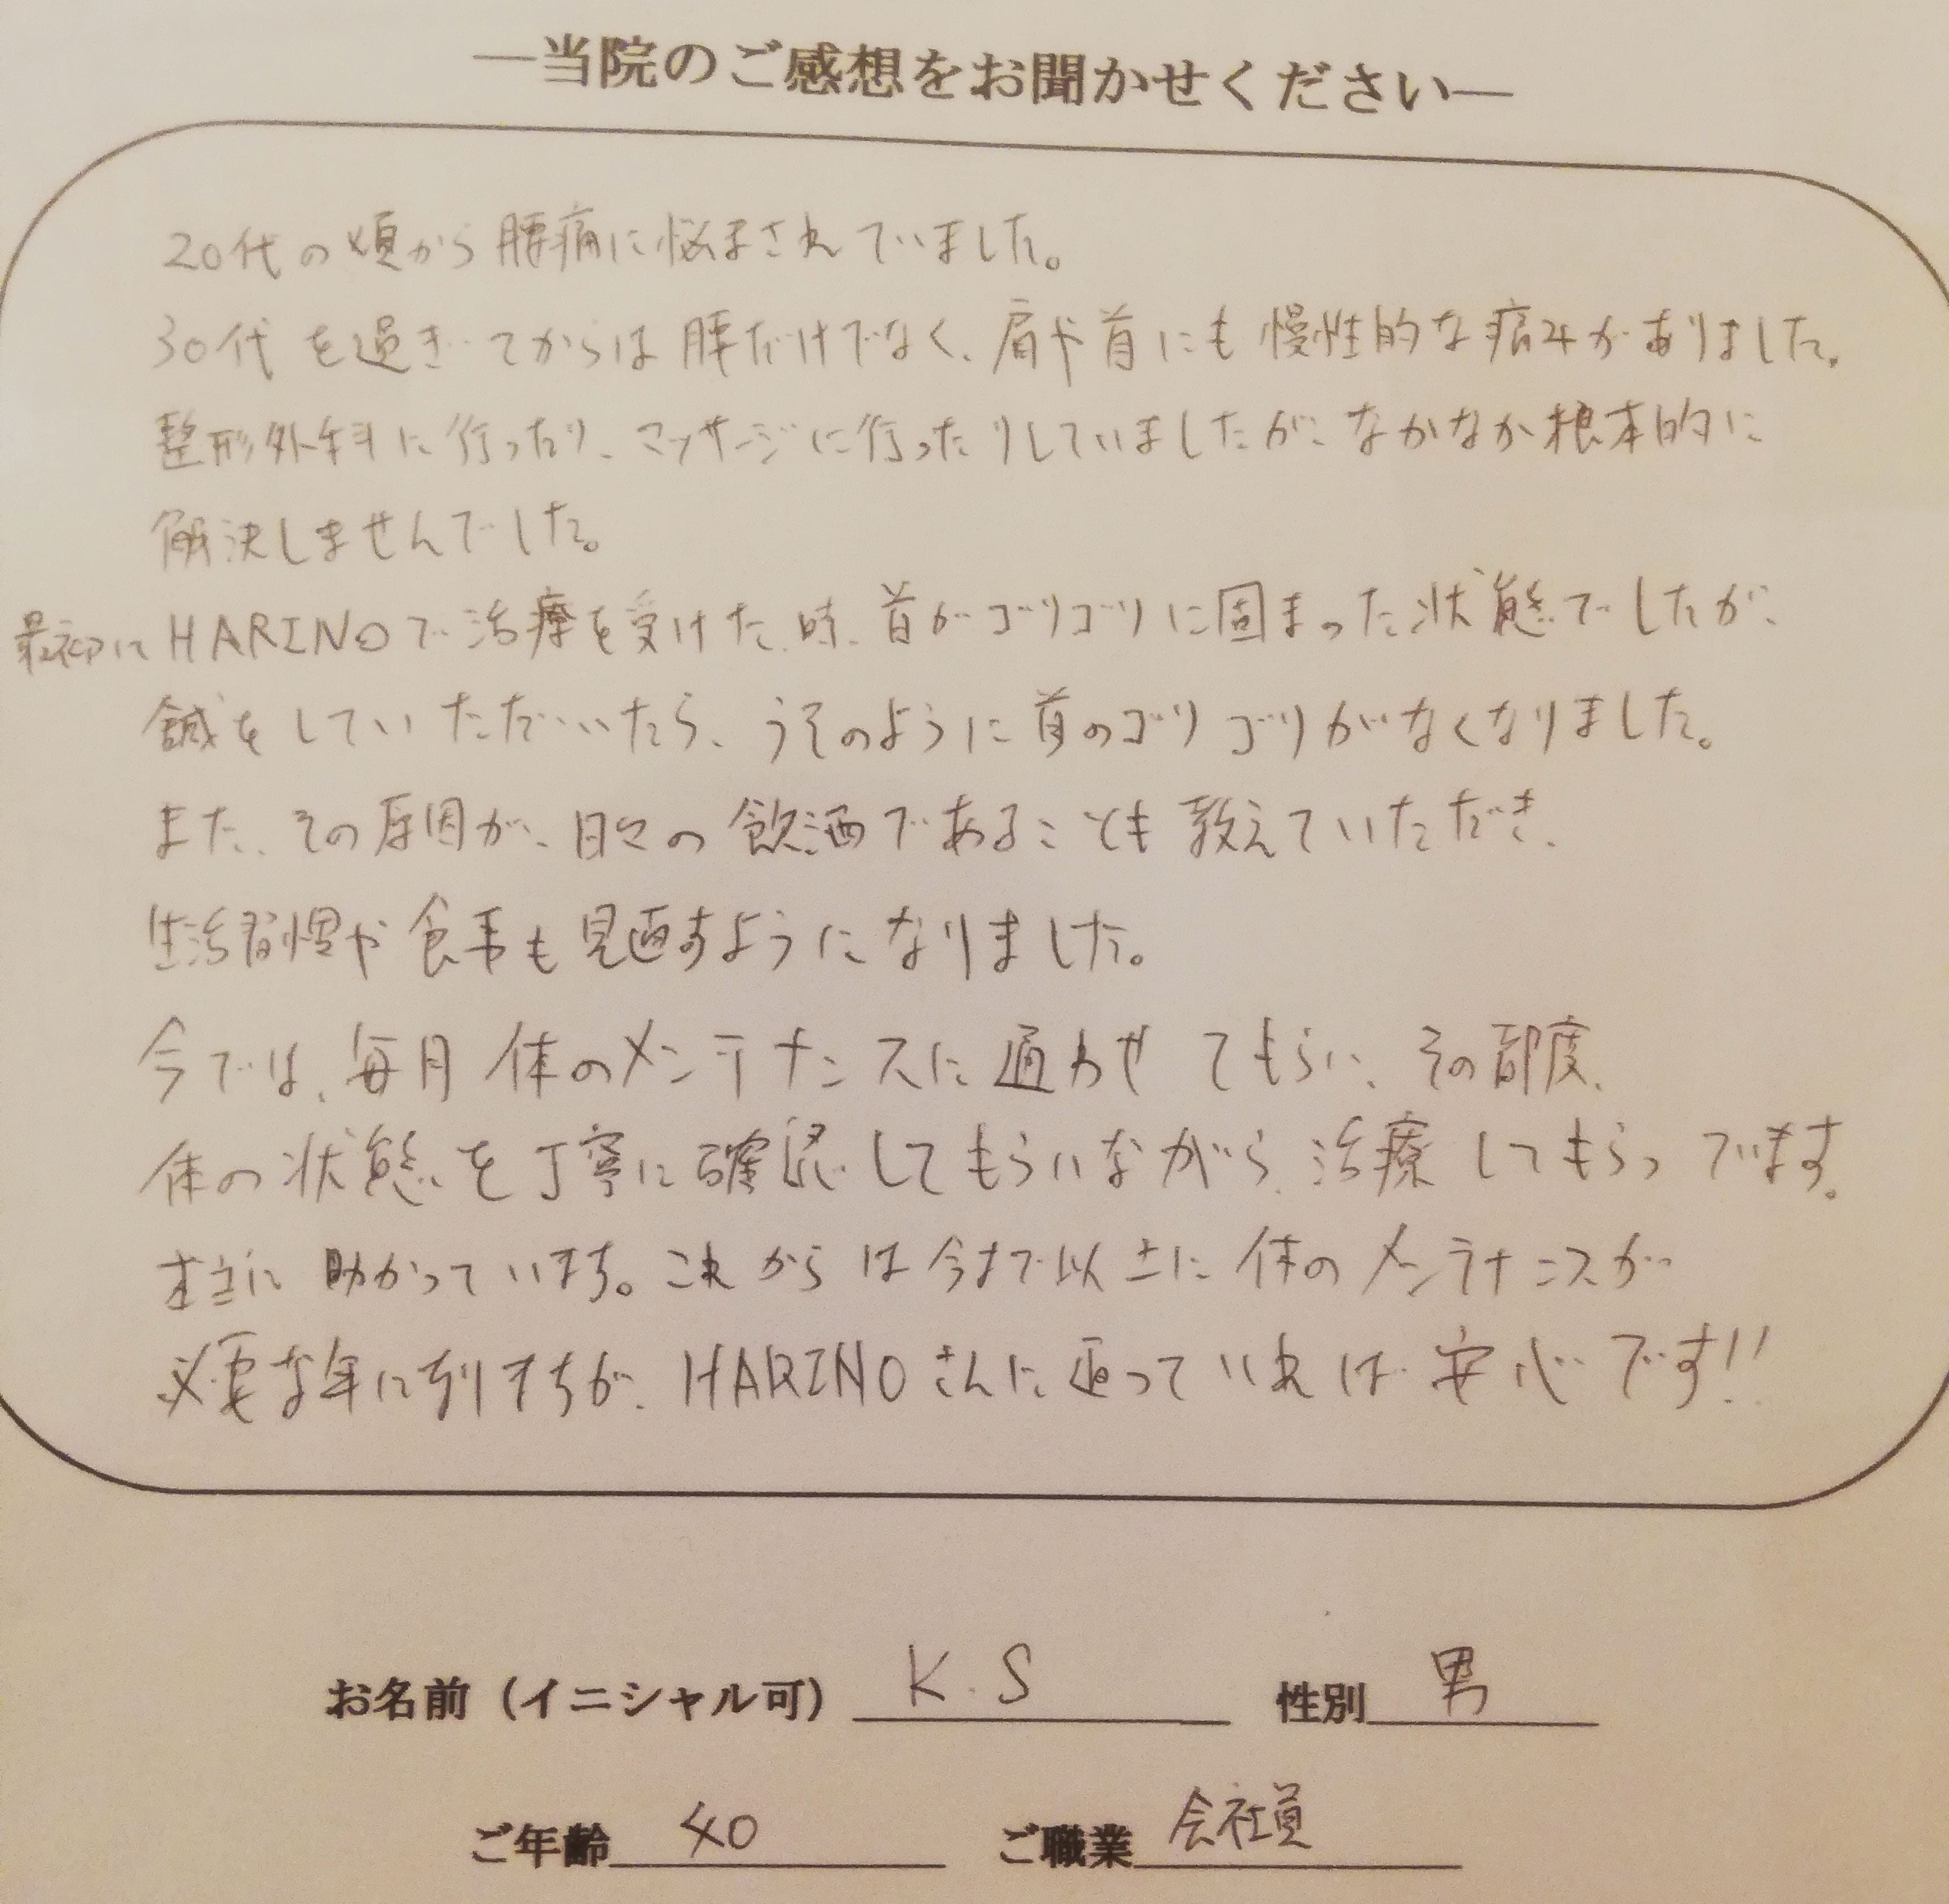 ―当院のご感想をお聞かせください―
20代の頃から腰痛に悩まされていました。
30代を過ぎてからは腰だけでなく、肩や首にも慢性的な痛みがありました。
整形外科に行ったり、マッサージに行ったりしていましたが、なかなか根本的に
解決しませんでした。
最初にHARINOで治療を受けた時、首がゴリゴリに固まった状態でしたが、
鍼をしていただいたら、うそのように首のゴリゴリがなくなりました。
また、その原因が、日々の飲酒であることも教えていただき、
生活習慣や食事も見直すようになりました。
今では、毎月体のメンテナンスに通わせてもらい、その都度、
体の状態を丁寧に確認してもらいながら、治療してもらってます。
本当に助かっています。これからは今まで以上に体のメンテナンスが
必要な年に到りますが、HARINOさんに通っていれば安心です!!
お名前（イニシャル可） K.S 性別 男
ご年齢 40 ご職業 会社員